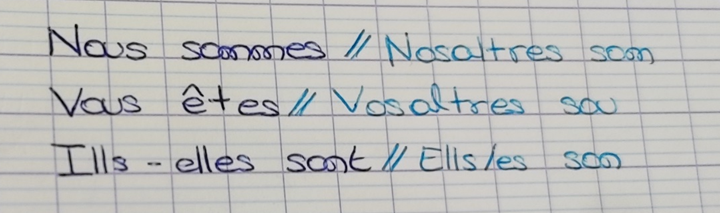 Nous sommes // Nosaltres som
Vous êtes // Vosaltres sou
Ills - elles sont // Ells/es son